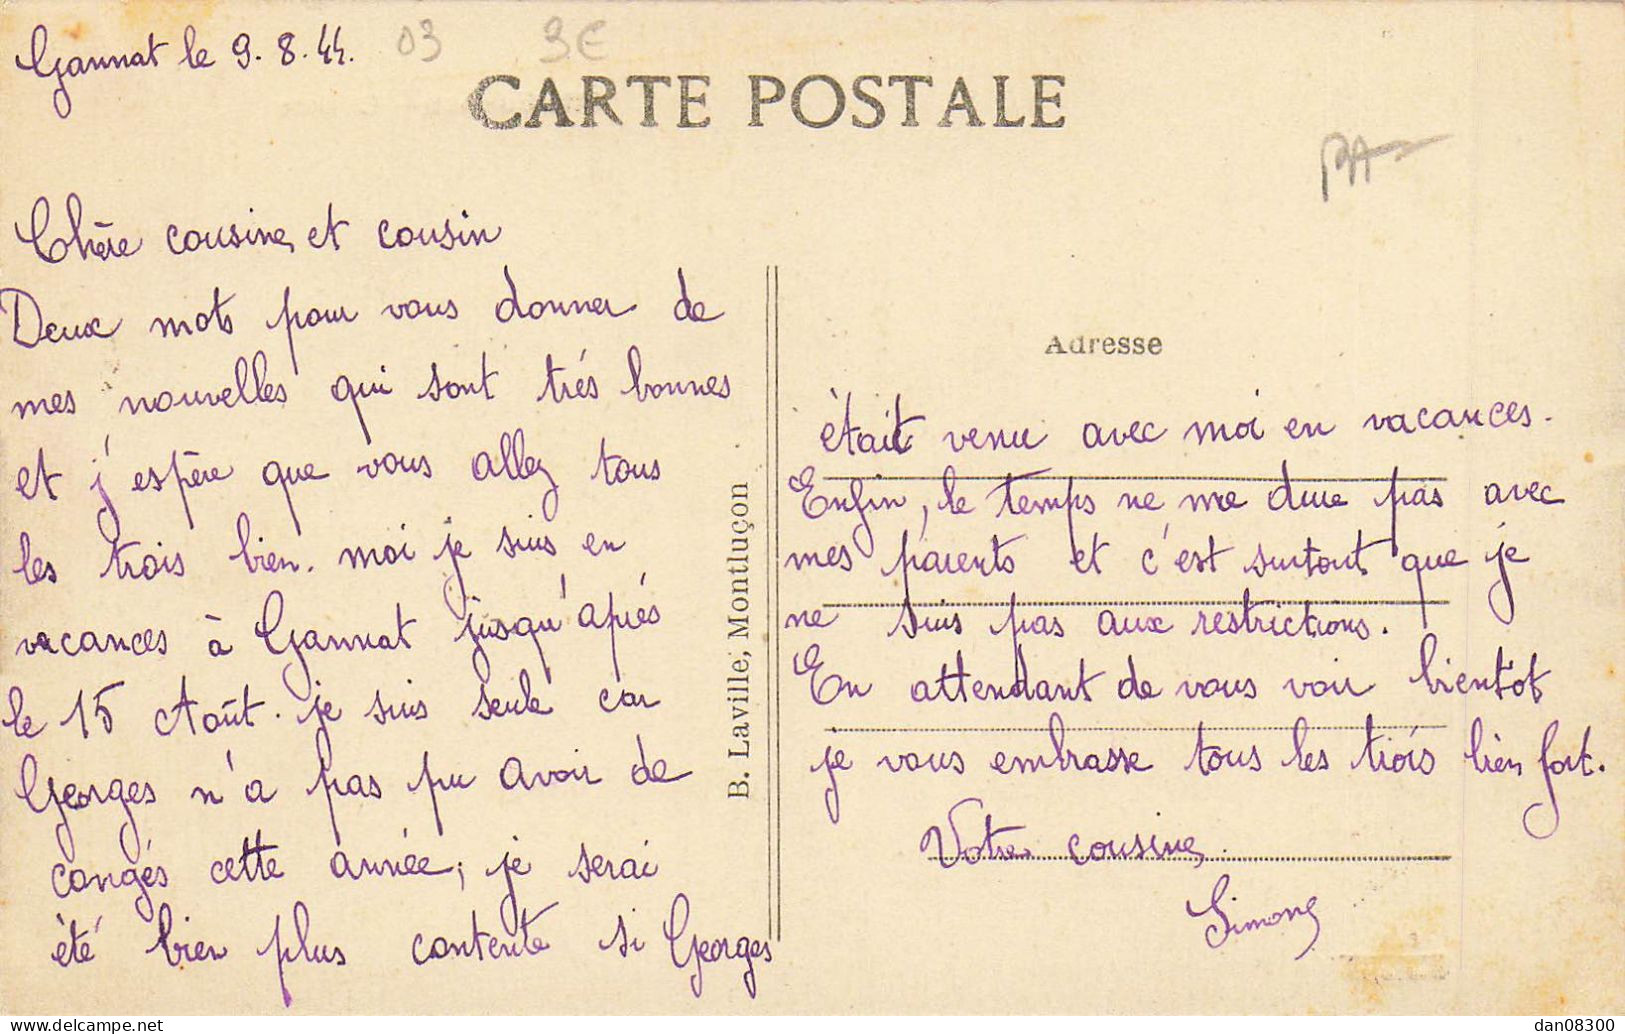 Gannat le 9.8.44.
03
3€
CARTE POSTALE
Chère cousine et cousin
Deux mots pour vous donner de
mes nouvelles qui sont trés bonnes
et j'espère que vous allez tous
les trois bien. moi je suis en
vacances à Gannat jusqu'aprés
le 15 Août. je suis seule car
Georges n'a pas pu avoir de
congés cette année, je serai
èté bien plus contente si Georges
B. Laville, Montluçon
Adresse
ètait venu avec moi en vacances.
Enfin, le temps ne me dure pas avec
mes parents et c'est surtout que je
ne suis pas aux restrictions.
En attendant de vous voir bientôt
je vous embrasse tous les trois bien fort.
Votre cousine
Simone
dan08300